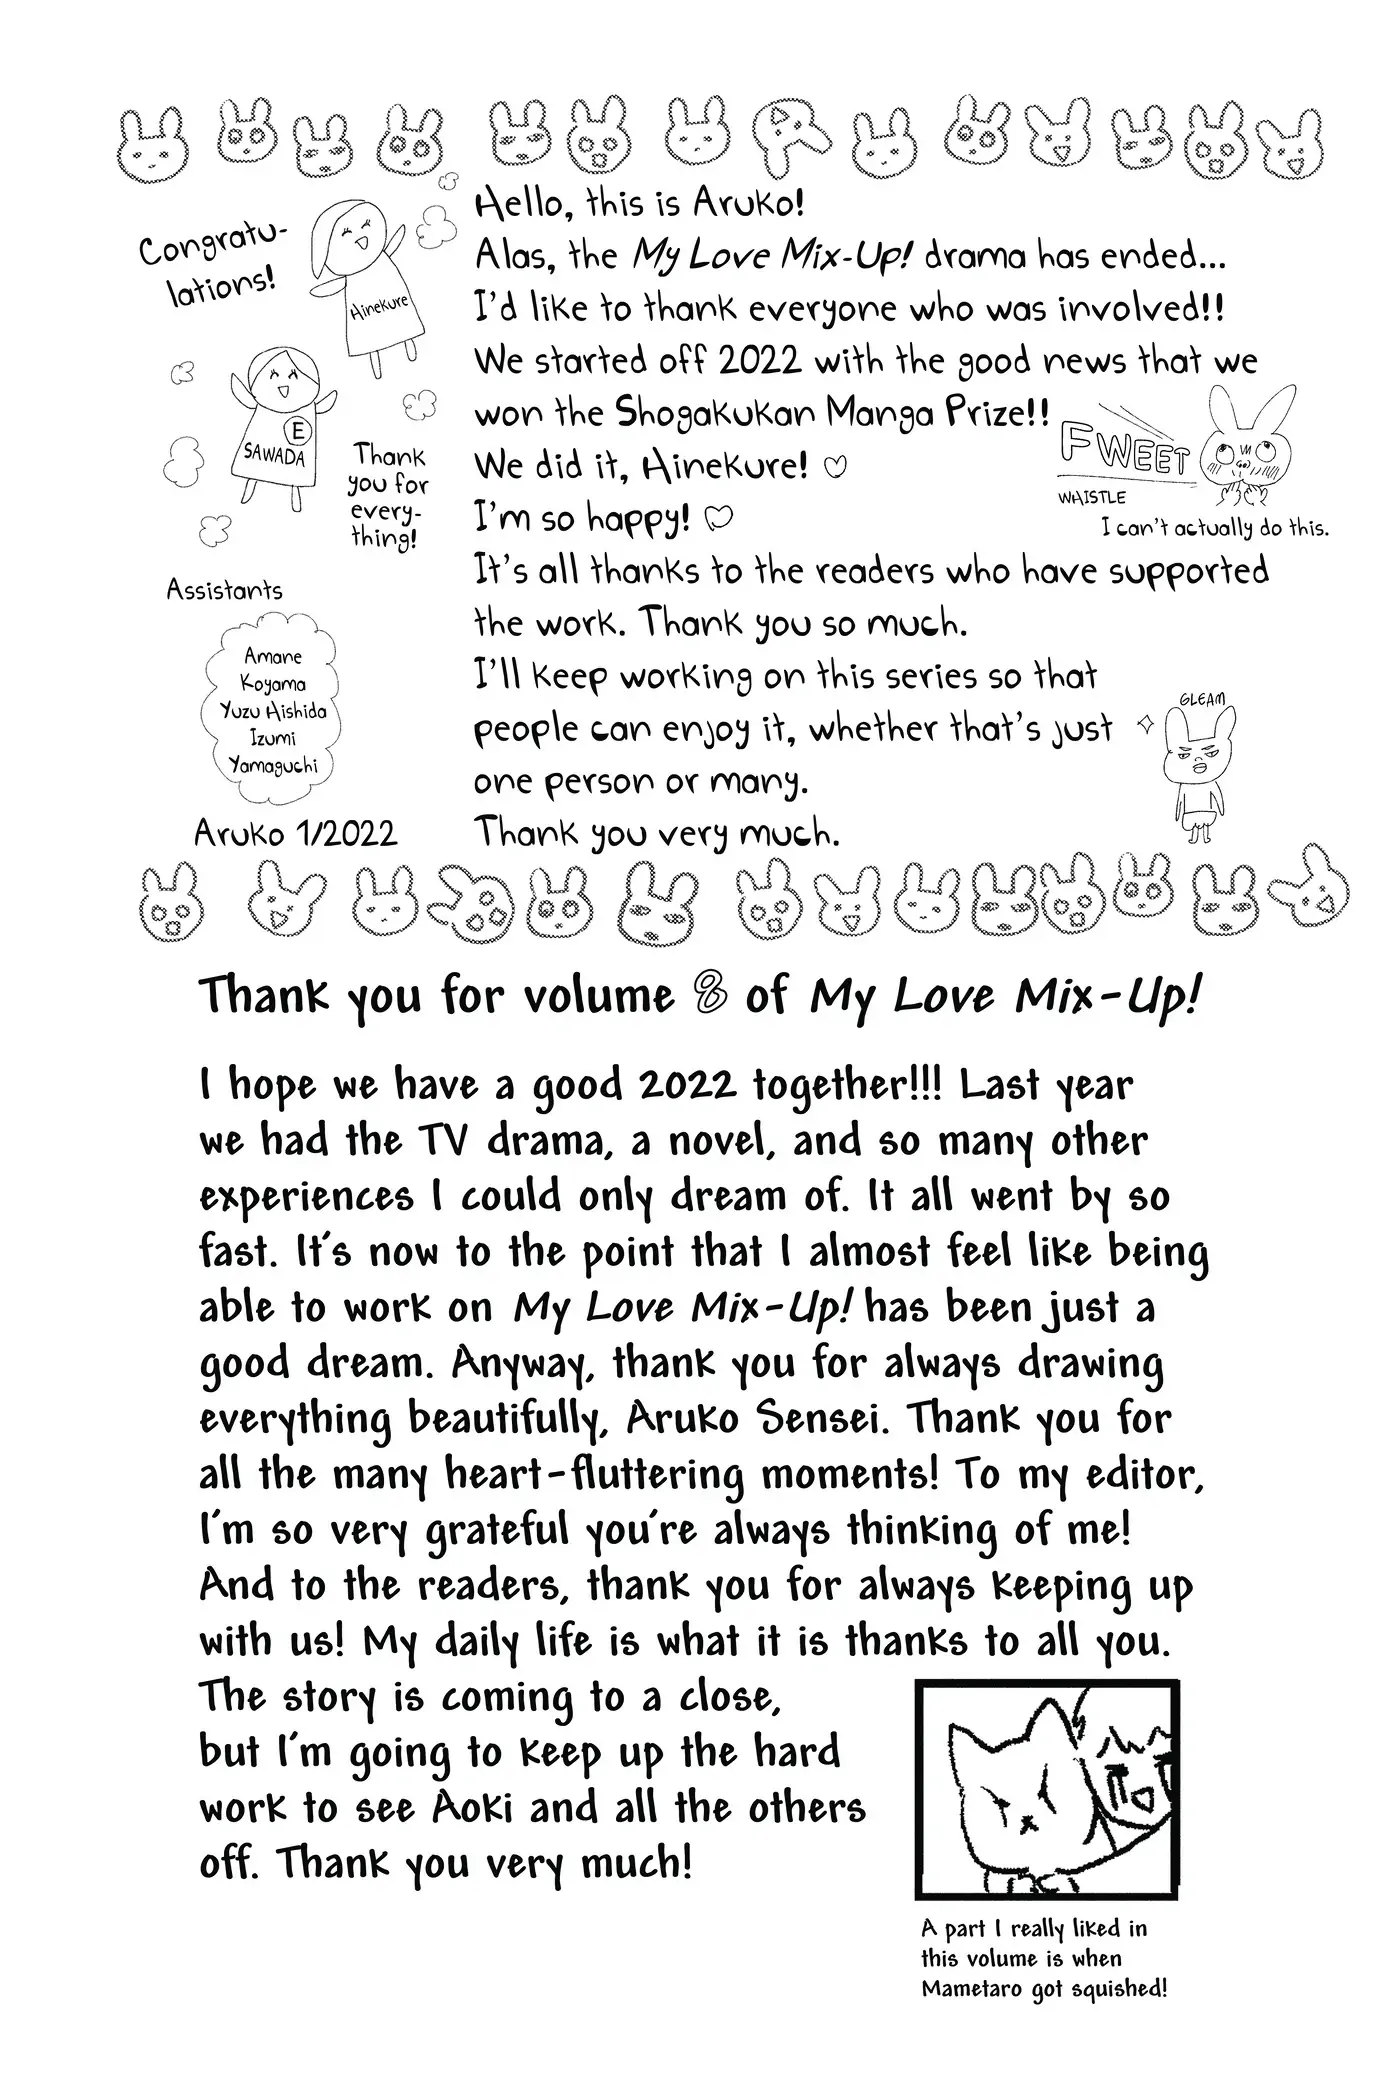 Congratu-
lations!
Hinekure
E
SAWADA
Thank
you for
every-
thing!
Assistants
Amane
Koyama
Yuzu Hishida
Izumi
Yamaguchi
Aruko 1/2022
Hello, this is Aruko!
Alas, the My Love Mix-Up! drama has ended...
I'd like to thank everyone who was involved!!
We started off 2022 with the good news that we
won the Shogakukan Manga Prize!!
We did it, Hinekure! ♡
I'm so happy! ♡
It's all thanks to the readers who have supported
the work. Thank you so much.
I'll keep working on this series so that
people can enjoy it, whether that's just
one person or many.
Thank you very much.
FWEET
WHISTLE
I can't actually do this.
GLEAM
Thank you for volume 8 of My Love Mix-Up!
I hope we have a good 2022 together!!! Last year
we had the TV drama, a novel, and so many other
experiences I could only dream of. It all went by so
fast. It's now to the point that I almost feel like being
able to work on My Love Mix-Up! has been just a
good dream. Anyway, thank you for always drawing
everything beautifully, Aruko Sensei. Thank you for
all the many heart-fluttering moments! To my editor,
I'm so very grateful you're always thinking of me!
And to the readers, thank you for always keeping up
with us! My daily life is what it is thanks to all you.
The story is coming to a close,
but I'm going to keep up the hard
work to see Aoki and all the others
off. Thank you very much!
A part I really liked in
this volume is when
Mametaro got squished!